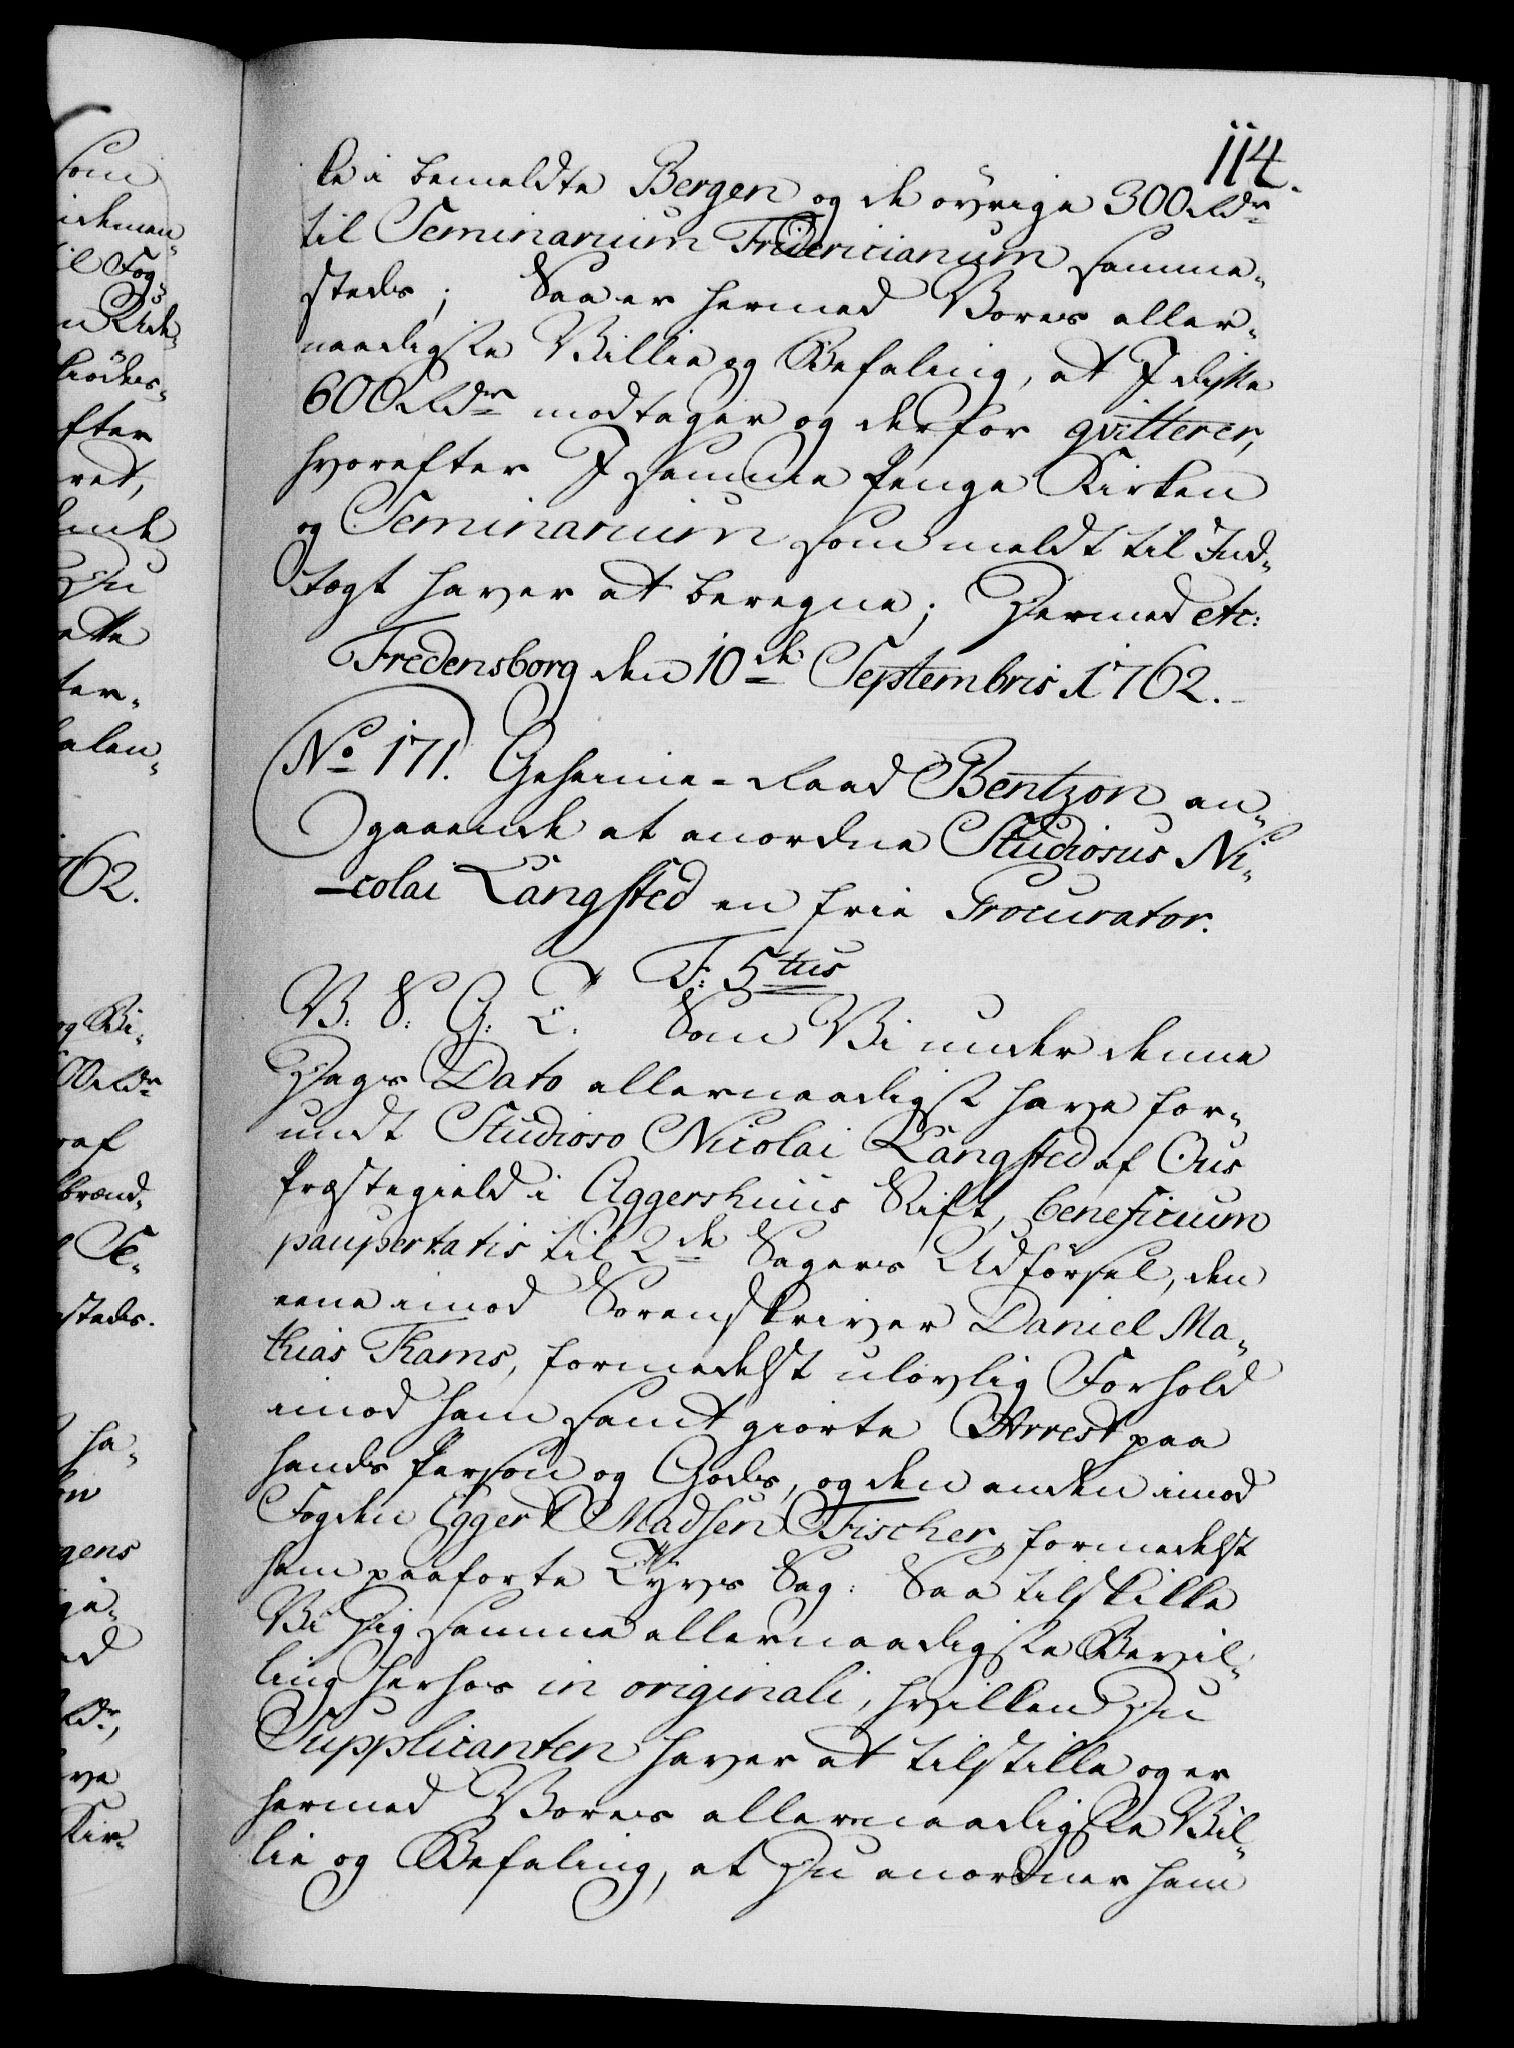 114.
ke i bemeldte Bergen og de øvrige 300 Rdr
til Seminarium Fridericianum samme-
steds; Saa er hermed Vores aller-
naadigste Villie og Befaling, at I diße
600 Rdr modtager og derfor qvitterer,
hvorefter I samme Penge Kirken
og Seminarium som meldt til Ind-
tægt haver at beregne; Dermed etc:
Fredensborg den 10de Septembris 1762.
No 171. Geheime-Raad Bentzon an-
gaaende at anordne Studiosus Ni-
colai Långsted en frie Procurator.
F: 5tus
V. S. G. T. Som Vi under denne
Dags Dato allernaadigst have for-
undt Studioso Nicolai Långsted af Ous
Præstegield i Aggershuus Stift, beneficium
paupertatis til 2de Sagers Udførsel, den
eene imod Sorenskriver Daniel Ma-
thias Thams, formedelst ulovlig Forhold
imod ham samt giorte Arrest paa
hands Person og Gods, og den anden imod
Fogden Eggert Madsen Fischer, formedelst
ham paaførte Tyvs Sag: Saa tilskikke
Vi Dig samme allernaadigste Bevil-
ling herhos in originali, hvilken Du
Supplicanten haver at tilstille og er
hermed Vores allernaadigste Vil-
lie og Befaling, at Du anordner ham